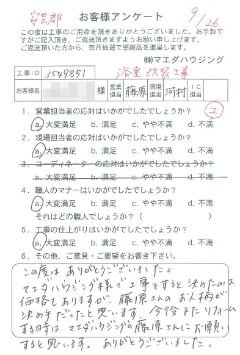 安芸郡
お客様アンケート
9/26
この度は工事のご用命を頂きありがとうございました。お手数で
すがご記入頂き、ご返送頂きますようお願い申し上げます。
ご返送頂いた方から、毎月抽選で感謝品を進呈します。
㈱マエダハウジング
工事ID J549851 浴室改装工事
お客様名 様 営業担当 藤原 現場担当 河村 IC担当
②
1. 営業担当者の応対はいかがでしたでしょうか?
a.大変満足 b.満足 c.やや不満 d.不満
2. 現場担当者の応対はいかがでしたでしょうか?
a.大変満足 b.満足 c.やや不満 d.不満
3. コーディネーターの応対はいかがでしたでしょうか?
a.大変満足 b.満足 c.やや不満 d.不満
4. 職人のマナーはいかがでしたでしょうか?
a.大変満足 b.満足 c.やや不満 d.不満
それはどの職人でしょうか( )
5. 工事の仕上がりはいかがでしたでしょうか?
a.大変満足 b.満足 c.やや不満 d.不満
6. その他、ご意見・ご要望をお書き下さい。
この度は、ありがとうございました。
マエダハウジング様で工事をすると決めたのは
価格もありますが、藤原さんのお人柄が
決め手だったと思います。今後またリフォーム
する時は、マエダハウジングの藤原さんにお願い
すると思います。ありがとうございました。